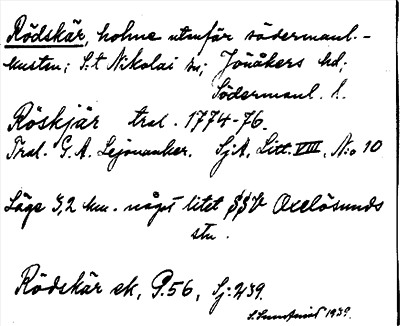 Rödskär, holme utanför södermanl.-
kusten; S:t Nikolai sn; Jönåkers hd;
Södermanl. l.
Röskjär tral. 1774-76.
Tral. G. A. Lejonanker. SjA, Litt. VIII, N:o 10
Läge 3,2 km. något litet SSV Oxelösunds
stn.
Rödskär ek, P.56, Sj. 239.
1939.